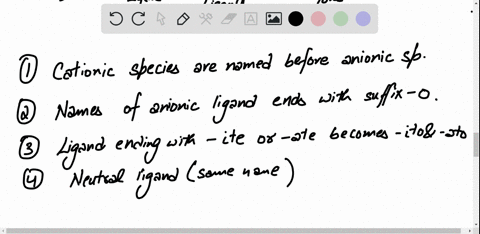 ① Cationic species are named before anionic sp.
② Names of anionic ligand ends with suffix -o.
③ Ligand ending with -ite or -ate becomes -ito & -ato
④ Neutral ligand (same name)